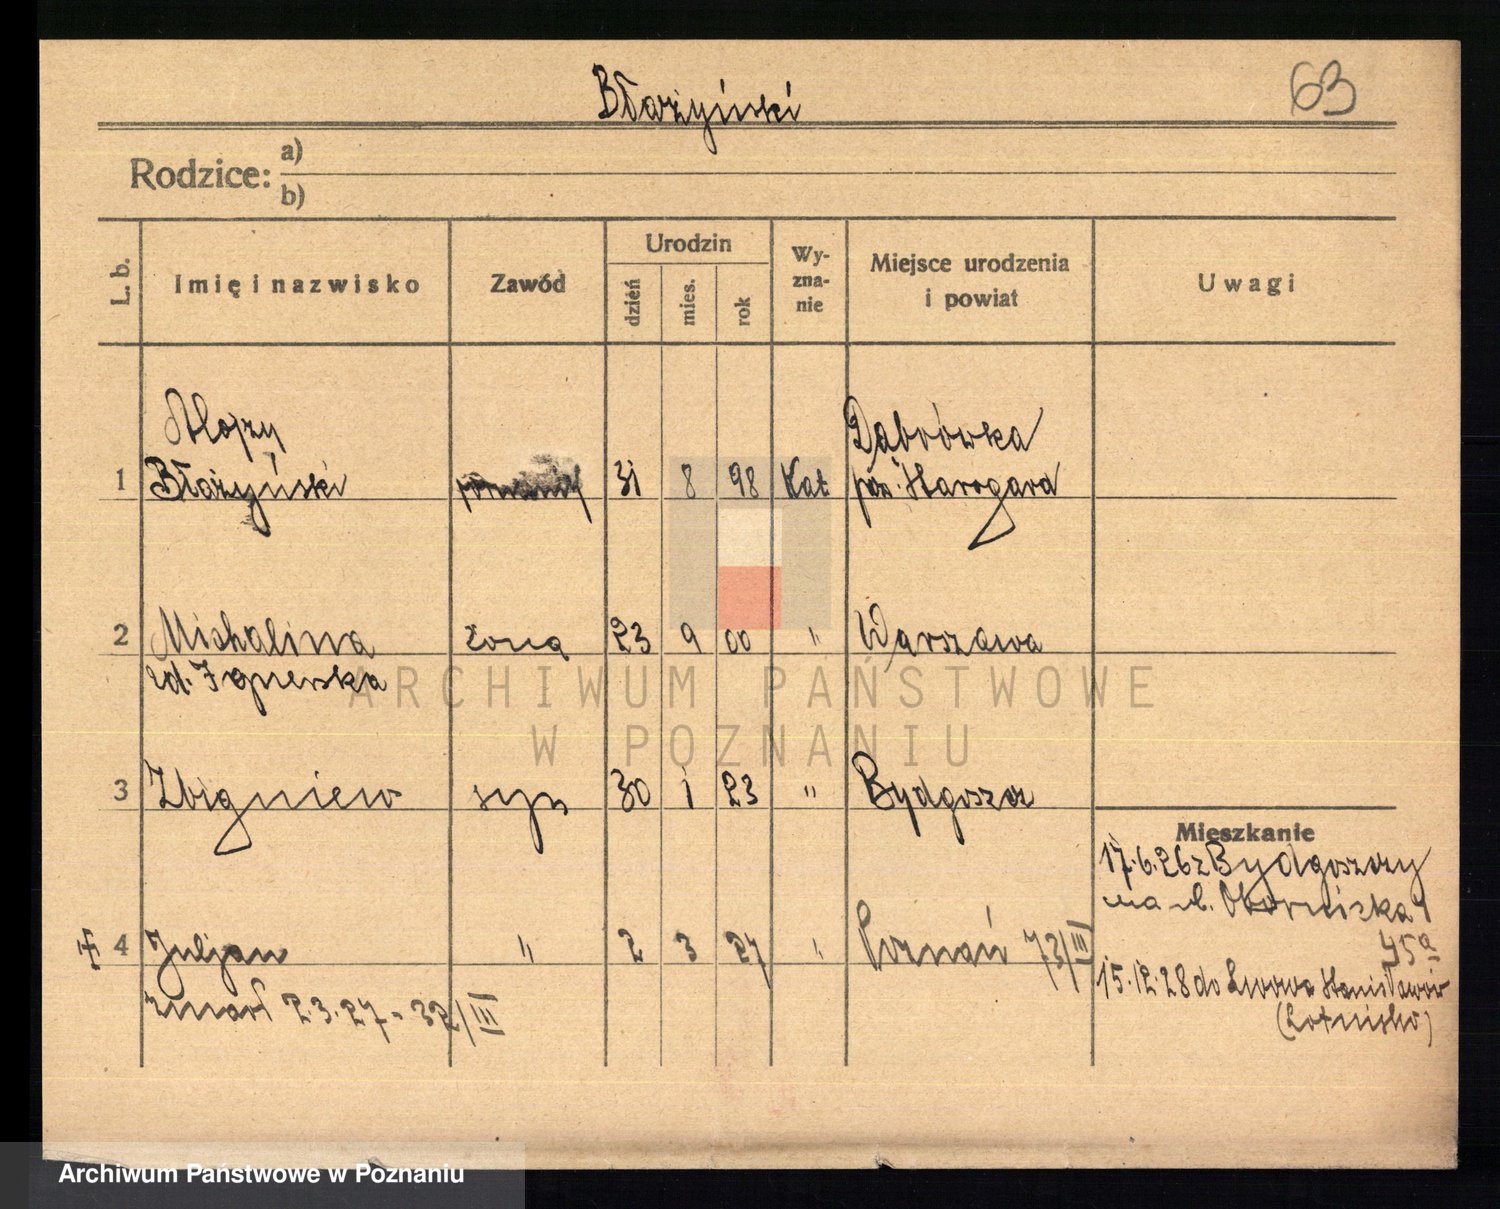 Błażyński
63
Rodzice: a)
b)
L. b.
Imię i nazwisko
Zawód
Urodzin
dzień
mies.
rok
Wy-
zna-
nie
Miejsce urodzenia
i powiat
Uwagi
Alojzy
Dąbrówka
1 Błażyński 31 8 98 Kat pow. Starogard
2 Michalina żona 23 9 00 " Warszawa
zd.
3 Zbigniew syn 30 1 23 " Bydgoszcz
Mieszkanie
17.6.26 z Bydgoszczy
na ul. Obornicka
45a
4 Juljan " 2 3 27 " Poznań 73/III
zmarł 2.3.27 - 32/III
15.12.28 do Lwowa Stanisławów
(Lotnisko)
ARCHIWUM PAŃSTWOWE
W POZNANIU
Archiwum Państwowe w Poznaniu